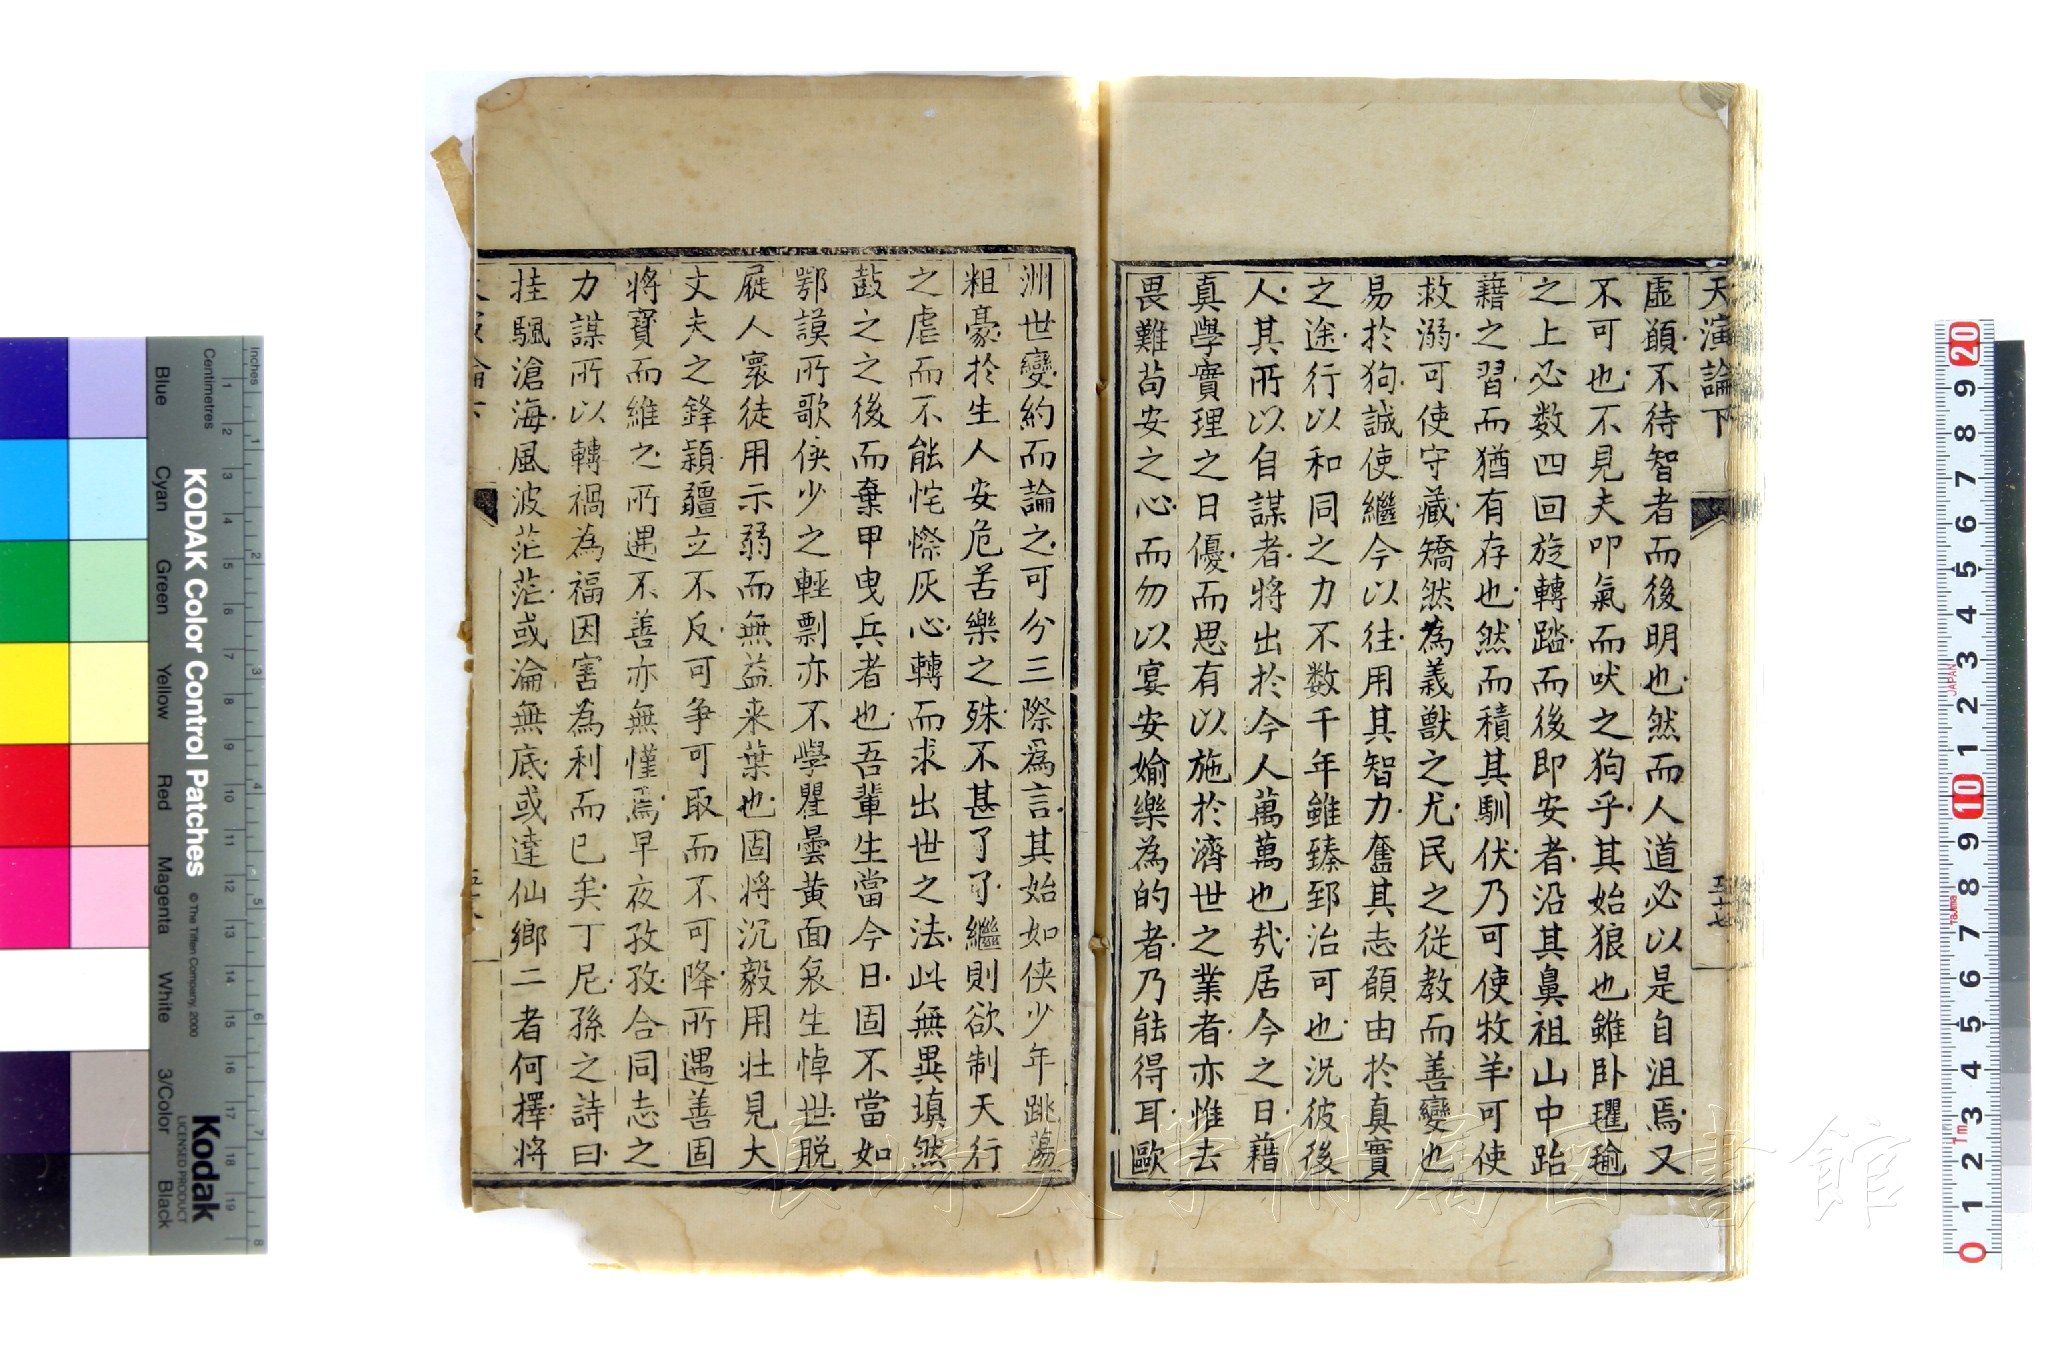 天演論下
五十七
虛顓不待智者而後明也然而人道必以是自沮焉又
不可也不見夫叩氣而吠之狗乎其始狼也雖臥氍毹
之上必数四回旋轉踏而後即安者沿其鼻祖山中跆
藉之習而猶有存也然而積其馴伏乃可使牧羊可使
救溺可使守藏矯然為義獸之尤民之從教而善變也
易於狗誠使繼今以往用其智力奮其志願由於真實
之途行以和同之力不数千年雖臻郅治可也況彼後
人其所以自謀者將出於今人萬萬也㢤居今之日藉
真學實理之日優而思有以施於濟世之業者亦惟去
畏難苟安之心而勿以宴安媮樂為的者乃能得耳歐
洲世變約而論之可分三際爲言其始如俠少年跳蕩
粗豪於生人安危苦樂之殊不甚了了繼則欲制天行
之虐而不能侘傺灰心轉而求出世之法此無異填然
鼓之之後而棄甲曳兵者也吾輩生當今日固不當如
鄂謨所歌俠少之輕剽亦不學瞿曇黄面哀生悼世脱
屣人寰徒用示弱而無益来葉也固將沉毅用壮見大
丈夫之鋒穎彊立不反可争可取而不可降所遇善固
將寳而維之所遇不善亦無慬焉早夜孜孜合同志之
力謀所以轉禍為福因害為利而已矣丁尼孫之詩曰
挂颿滄海風波茫茫或淪無底或達仙鄉二者何擇將
KODAK Color Control Patches
© The Tiffen Company, 2000
Kodak
LICENSED PRODUCT
Inches
Centimetres
Blue
Cyan
Green
Yellow
Red
Magenta
White
3/Color
Black
JAPAN
Tajima
長崎大学附属図書館